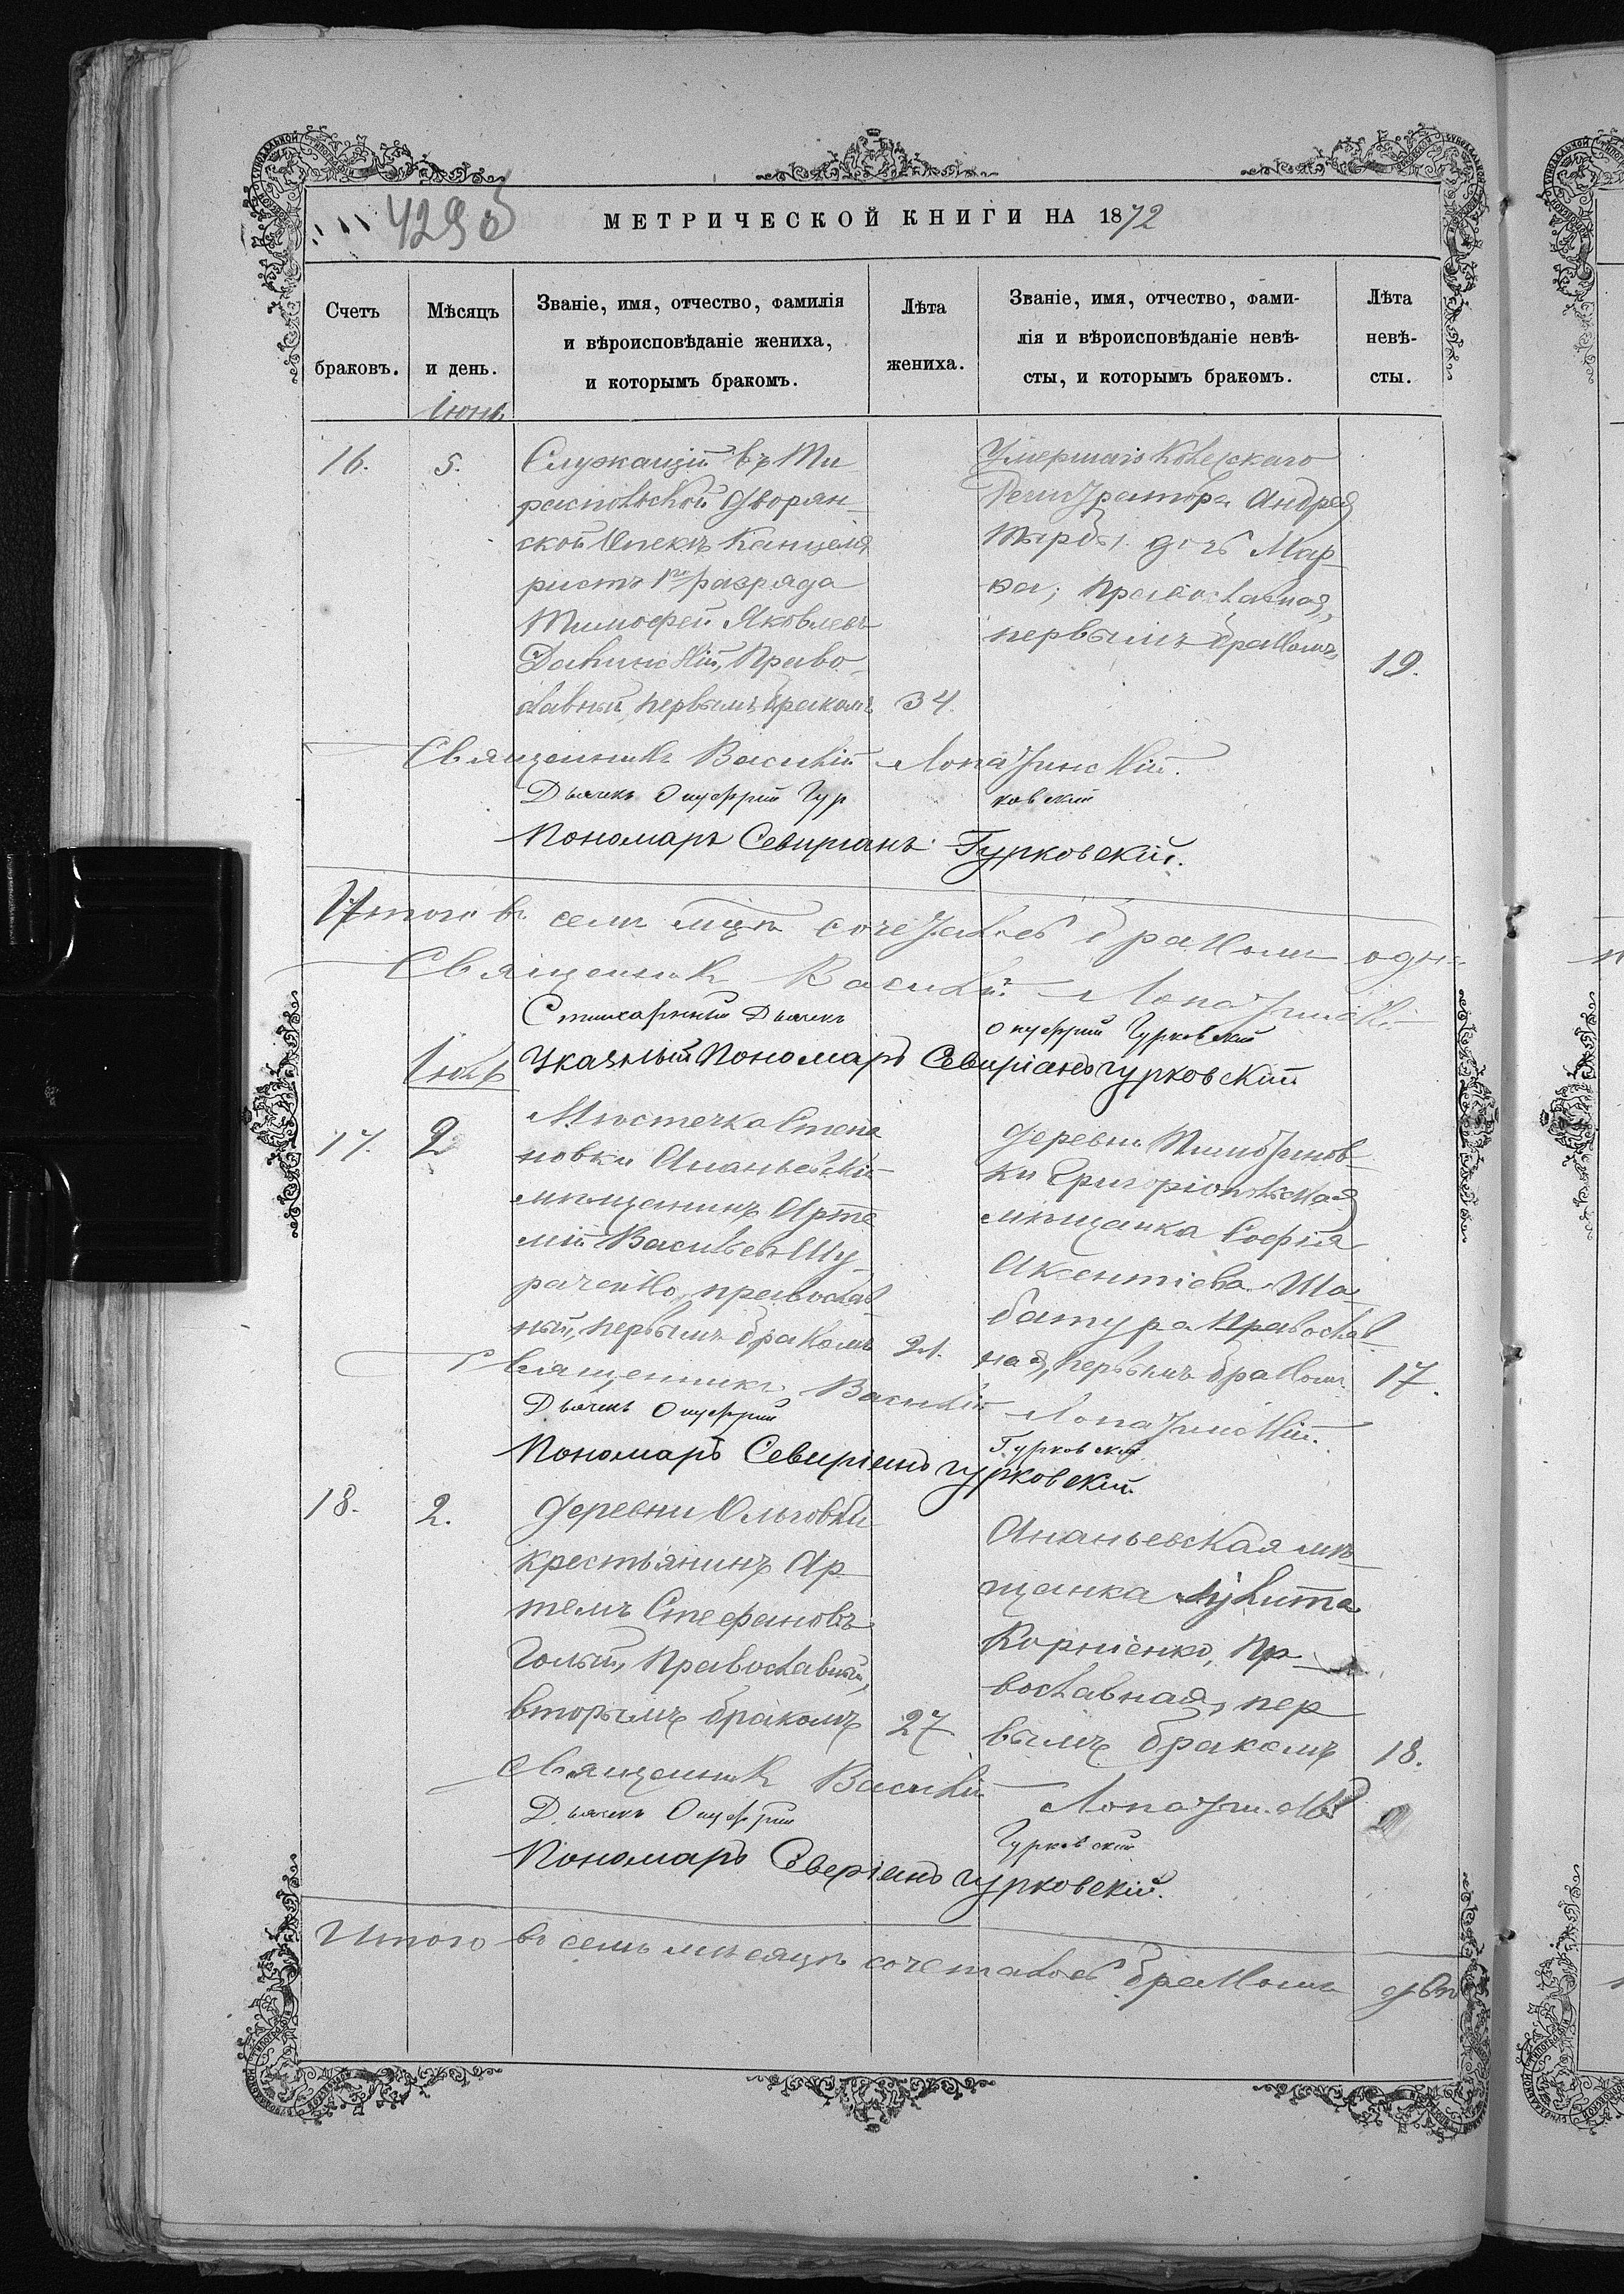 МЕТРИЧЕСКОЙ КНИГИ НА 1872
Счетъ браковъ.
Мѣсяцъ и день.
Званіе, имя, отчество, фамилія
и вѣроисповѣданіе жениха,
и которымъ бракомъ.
Лѣта жениха.
Званіе, имя, отчество, фами-
лія и вѣроисповѣданіе невѣ-
сты, и которымъ бракомъ.
Лѣта невѣ-
сты.
Іюнь
16.
5.
Служащій въ Ти
распольской Дворян-
ской Опекѣ Канцеля
ристъ 1го разряда
Тимофей Яковлевъ
Право-
славный, первымъ бракомъ
34
Умершаго Колежскаго
Регистратора Андрея
дочь Мар-
ѳа, Православная,
первымъ бракомъ,
19.
Священникъ Василій Лопатинскій.
Дьячекъ Онуфрій Гурковскій
Пономарь Севиріанъ Гурковскій.
Итого въ семъ мцѣ сочеталось бракомъ одн
Священник Василій Лопатинскій
Стихарный Дьячекъ Онуфрій Гурковскій
Указный Пономарь Севиріанъ Гурковскій
Іюль
17.
2
Мѣстечка Степа
новки Ананьевскій
мѣщанинъ Арте
мій Васильевъ Шу-
раченко, православ
ный, первымъ бракомъ
21.
Деревни
ки Григоріопольская
мѣщанка Софія
Аксентіева Ша-
батура Православ
ная, первымъ бракомъ
17.
Священникъ Василій Лопатинскій.
Дьячекъ Онуфрій Гурковскій
Пономарь Севиріанъ Гурковскій.
18.
2.
Деревни Ольговки
крестьянинъ Ар
темъ Стефановъ
Голый, Православный,
вторымъ бракомъ
27
Ананьевская мѣ-
щанка Лукита
Корніенко, Пр
вославная, пер
вымъ бракомъ
18.
Священник Василій Лопатинскій
Дьячекъ Онуфрій Гурковскій
Пономарь Северіанъ Гурковскій.
Итого въ семъ мѣсяцѣ сочеталось бракомъ двѣ